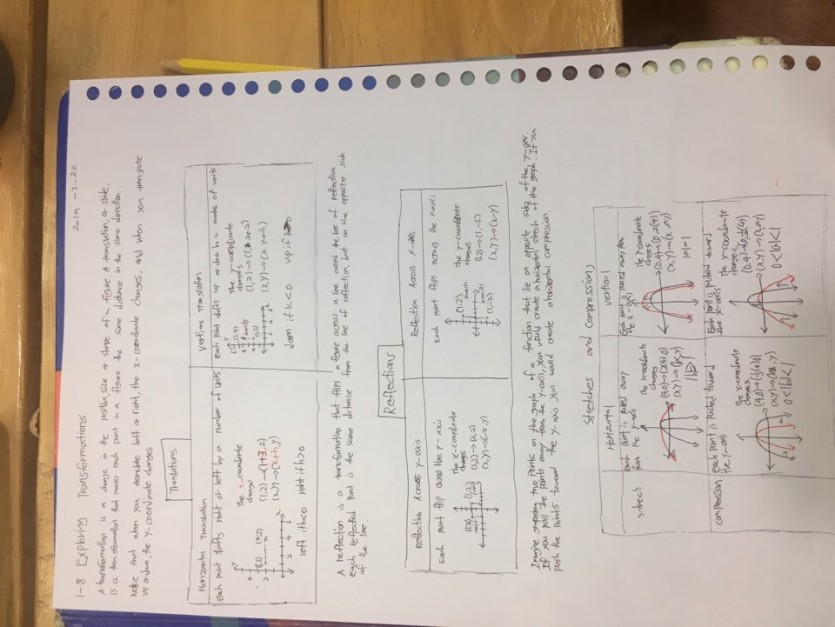 1-8 Exploring Transformations 2019-7-20
A transformation is a change in the position, size or shape of a figure. A translation, or slide,
is a transformation that moves each point in a figure the same distance in the same direction
Note that when you translate left or right, the x-coordinate changes, and when you translate
up or down, the y-coordinate changes
Translations
Horizontal Translation
Each point shifts right or left by a number of units
The x-coordinate
changes
(1,2)→(1+3,2)
(x,y)→(x+h,y)
left if h<0 right if h>0
Vertical Translation
Each point shifts up or down by a number of units
The y-coordinate
changes
(1,2)→(1,2+2)
(x,y)→(x,y+k)
down if k<0 up if k>0
A reflection is a transformation that flips a figure across a line called the line of reflection
Each reflected point is the same distance from the line of reflection, but on the opposite side
of the line
Reflections
Reflection Across y-axis
Each point flip across the y-axis
The x-coordinate
changes
(x,y)→(-x,y)
Reflection Across x-axis
Each point flips across the x-axis
The y-coordinate
changes
(1,2)→(1,-2)
(x,y)→(x,-y)
Imagine grasping two points on the graph of a function that lie on opposite sides of the y-axis.
If you pull the points away from the y-axis, you would create a horizontal stretch of the graph. If you
push the points toward the y-axis you would create a horizontal compression
Stretches and Compressions
Horizontal
Vertical
stretch
Each point is pulled away
from the y-axis
The x-coordinate
changes
The y-coordinate
changes
compression
Each point is pushed toward
the y-axis
The x-coordinate
changes
0<|b|<1
Each point is pushed toward
the x-axis
The y-coordinate
changes
0<|a|<1